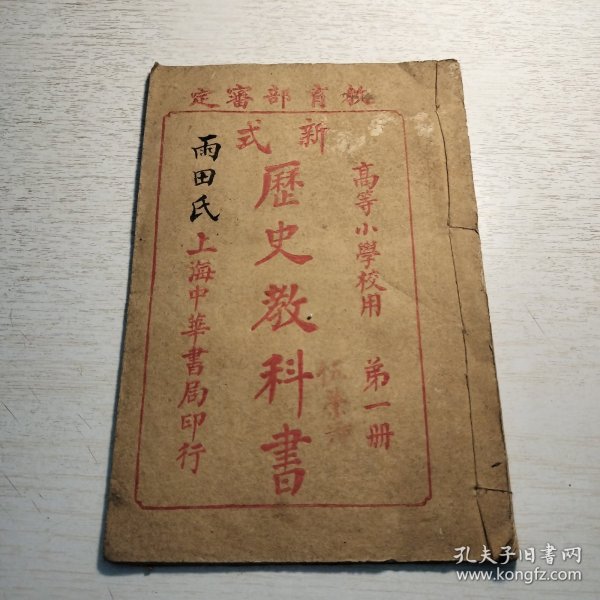 教育部審定
新式
高等小學校用 第一册
歷史教科書
雨田氏
上海中華書局印行
孔夫子旧書网
www.kongfz.com